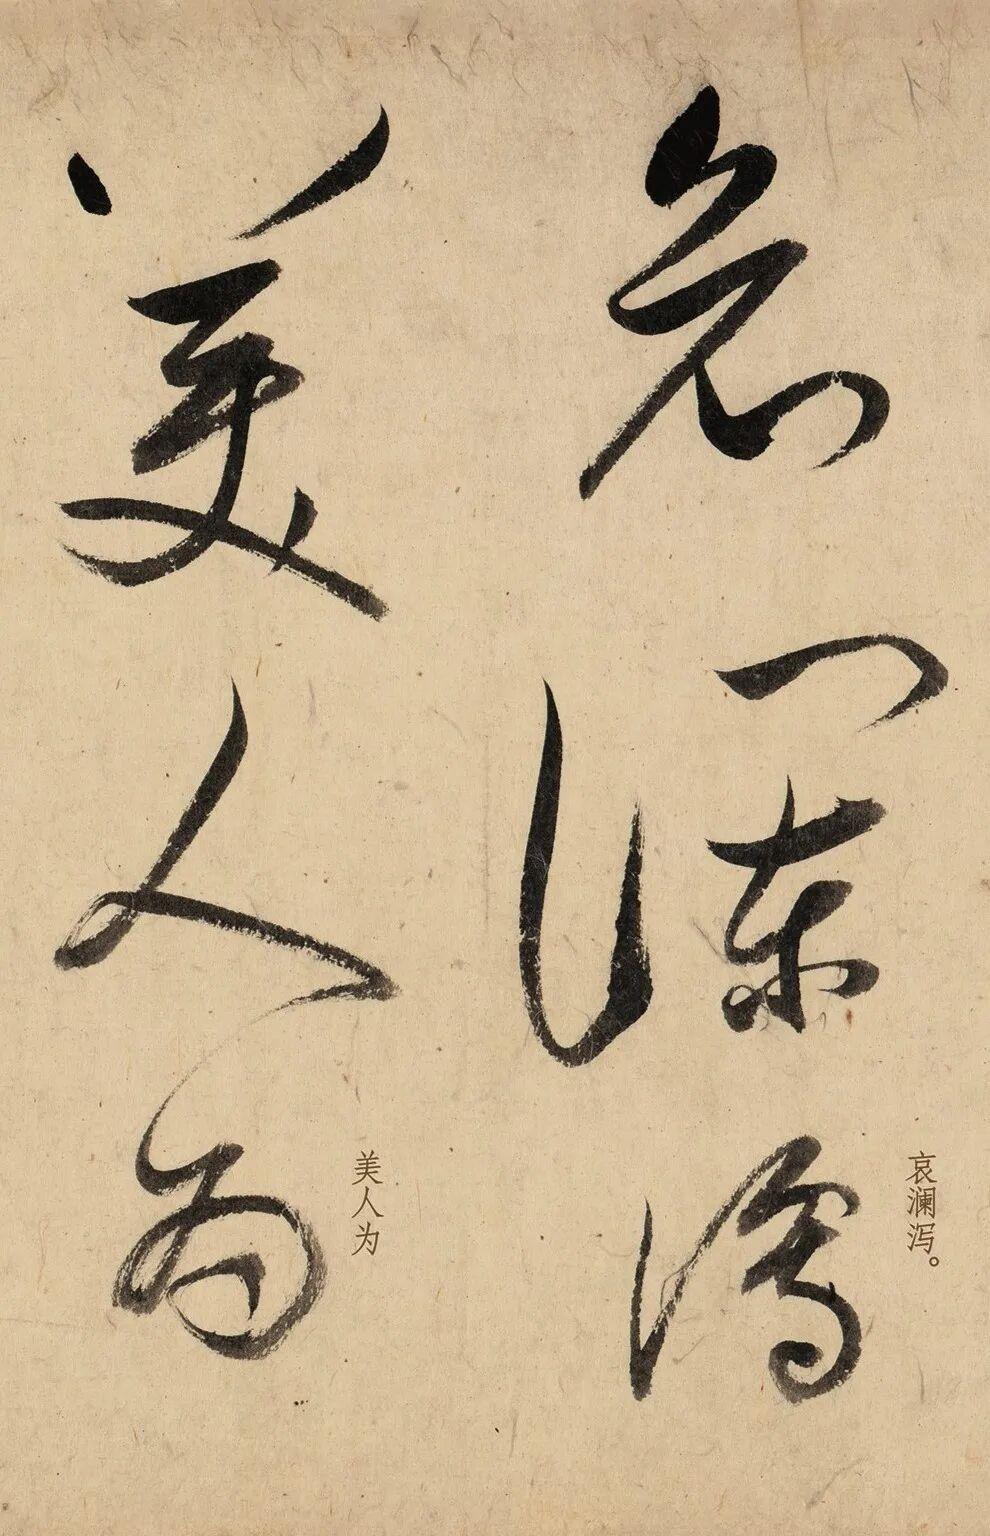 哀澜泻
哀澜泻。
美人为
美人为